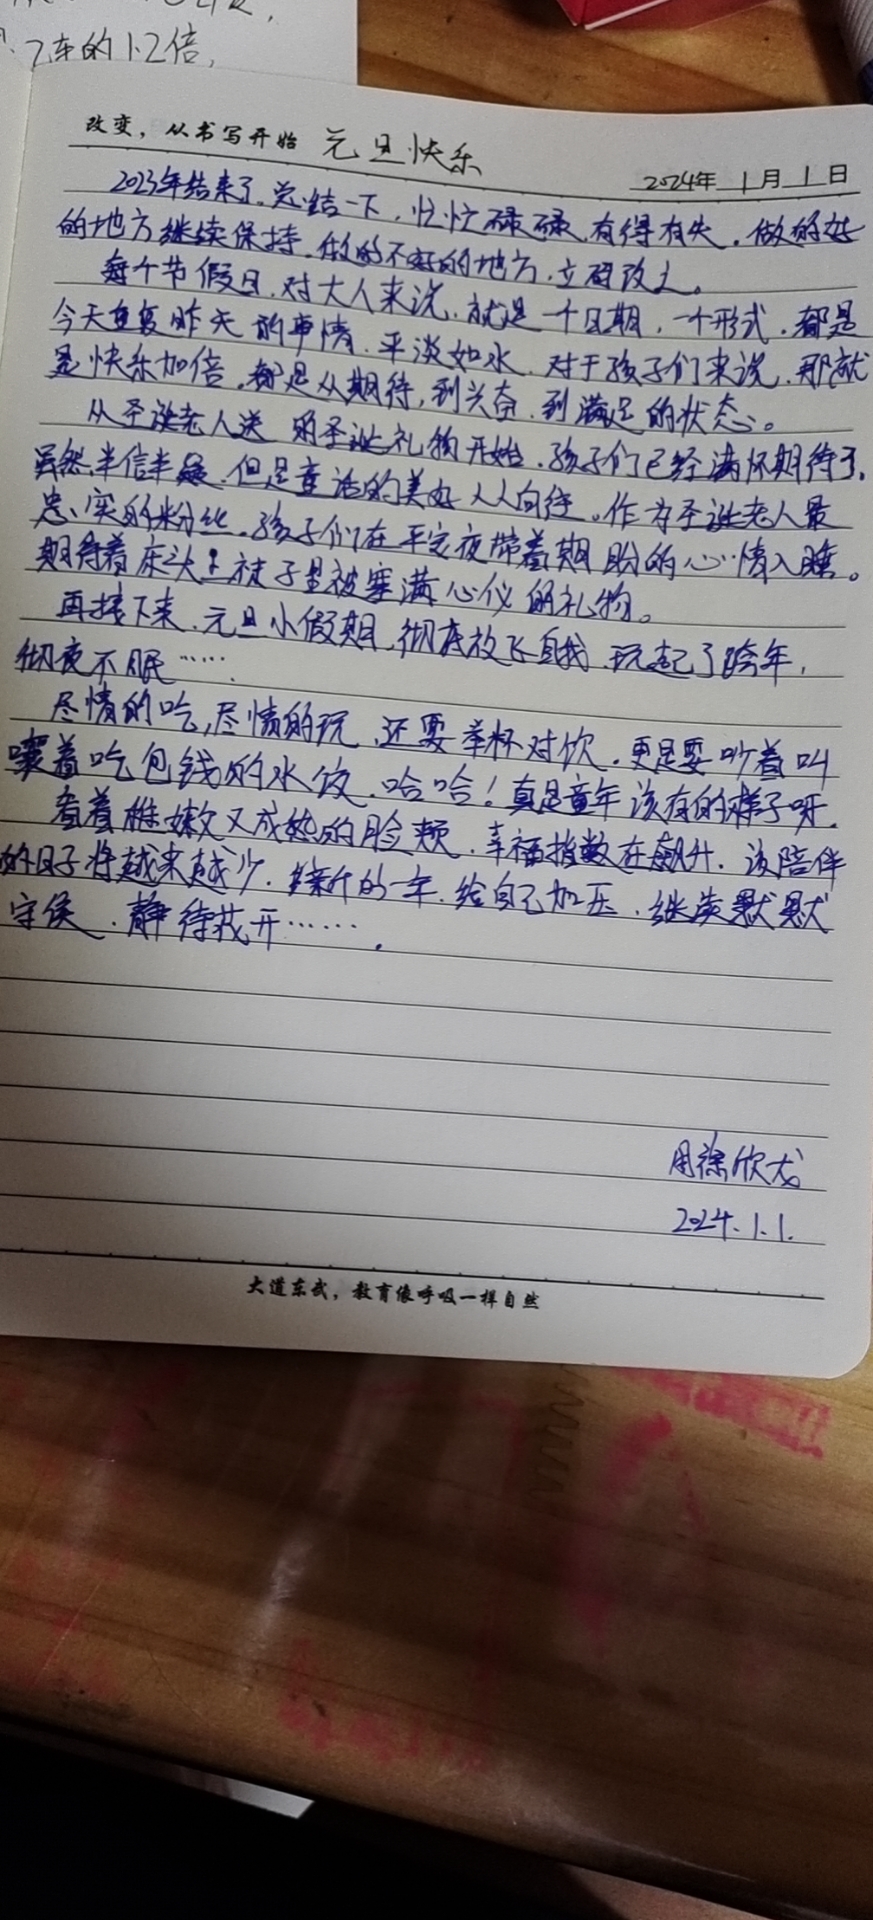 7车的1.2倍,
改变，从书写开始 元旦快乐
2024年 1月 1日
2023年结束了.总结一下.忙忙碌碌.有得有失.做的好
的地方继续保持.做的不好的地方.立码改之。
每个节假日.对大人来说.就是一个日期.一个形式.都是
今天重复昨天的事情.平淡如水.对于孩子们来说.那就
是快乐加倍.都是从期待,到兴奋.到满足的状态。
从圣诞老人送的圣诞礼物开始.孩子们已经满怀期待了.
虽然半信半疑.但是童话的美好人人向往。作为圣诞老人最
忠实的粉丝.孩子们在平安夜带着期盼的心情入睡。
期待着床头 袜子里被塞满心仪的礼物。
再接下来.元旦小假期.彻底放飞自我 玩起了跨年,
彻夜不眠……
尽情的吃,尽情的玩.还要举杯对饮.更是要吵着叫
嚷着吃包钱的水饺.哈哈!真是童年该有的样子呀.
看着稚嫩又成熟的脸颊.幸福指数在飙升.该陪伴
的日子将越来越少.新的一年.给自己加压.继续默默
守候.静待花开…….
2024.1.1.
大道东武，教育像呼吸一样自然